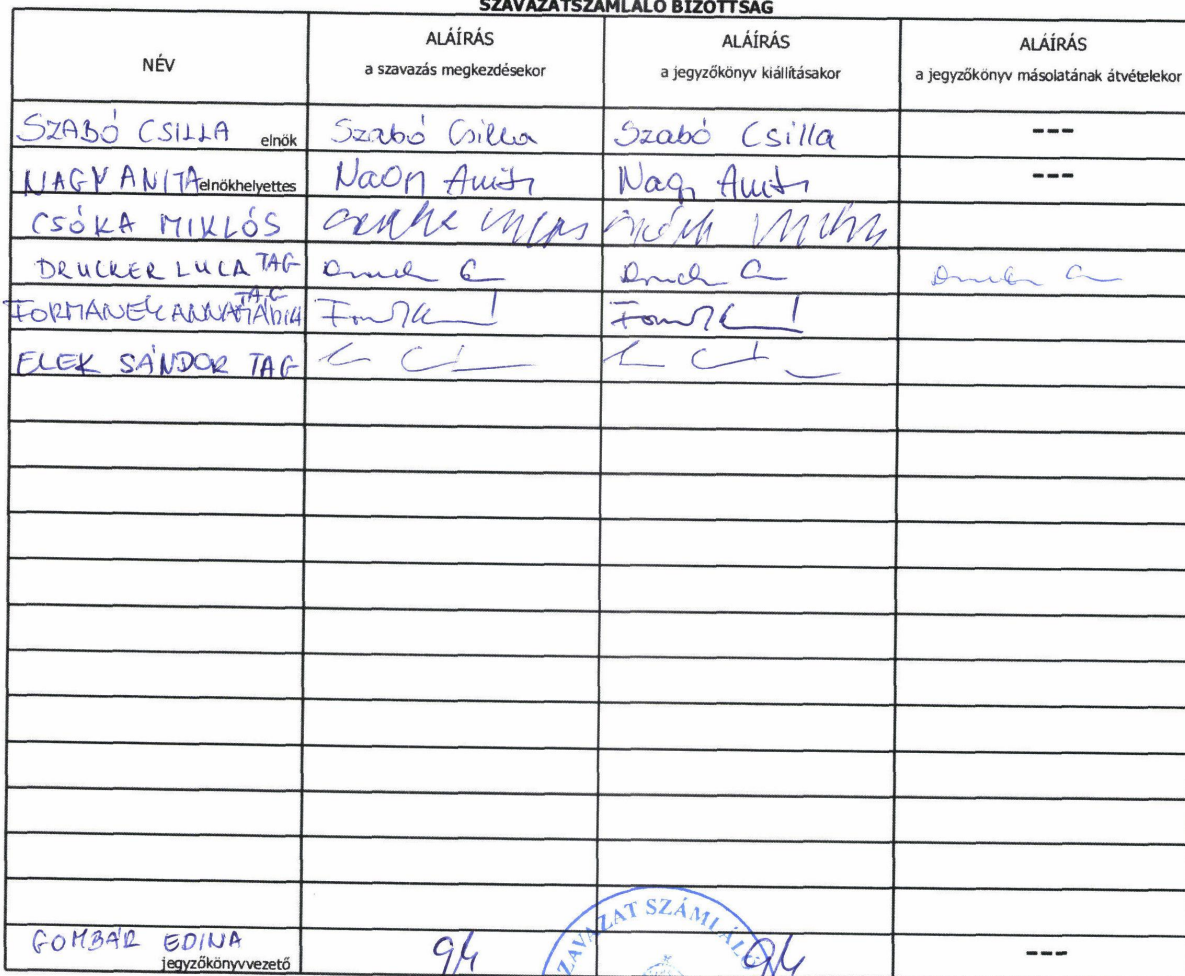 SZAVAZATSZÁMLÁLÓ BIZOTTSÁG
NÉV
ALÁÍRÁS
a szavazás megkezdésekor
ALÁÍRÁS
a jegyzőkönyv kiállításakor
ALÁÍRÁS
a jegyzőkönyv másolatának átvételekor
SZABÓ CSILLA elnök Szabó Csilla Szabó Csilla ---
NAGY ANITA elnökhelyettes ---
CSÓKA MIKLÓS
DRUCKER LUCA TAG
TAG
FORMANEK ANNAMÁRIA
ELEK SÁNDOR TAG
GOMBÁR EDINA
jegyzőkönyvvezető ---